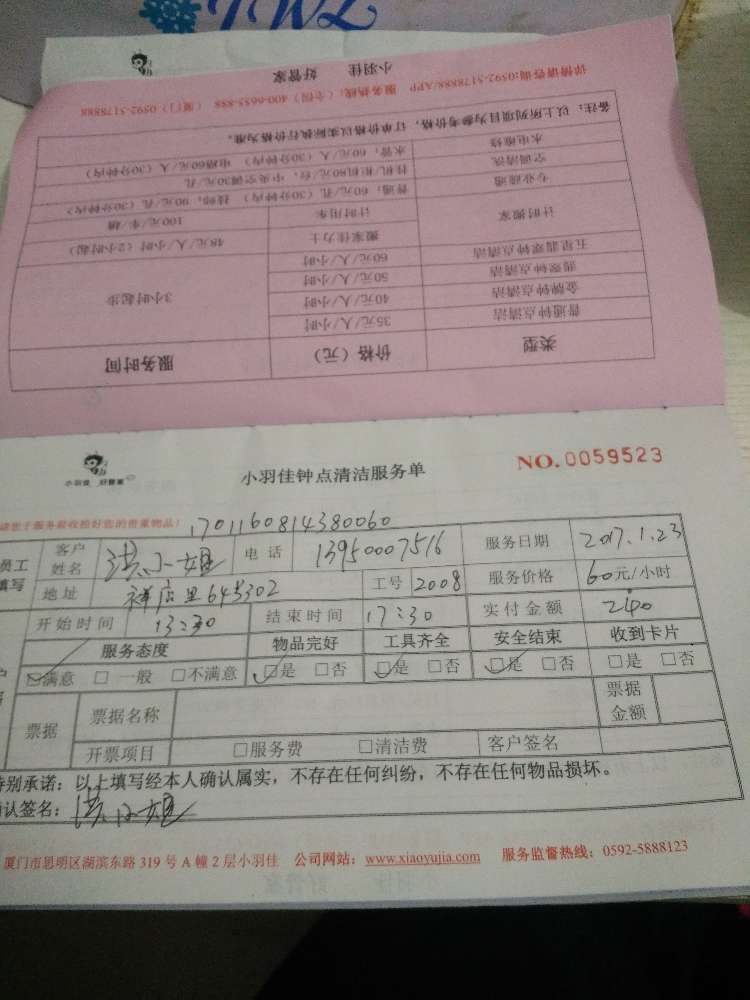 小羽佳 好管家
详情请咨询:0592-5178888/APP 服务热线:(全国)400-6655-888 (厦门)0592-5178888
备注:以上所列项目为参考价格,订单价格以实际执行价格为准。
水电维修 水管:60元/人(30分钟内) 电路60元/人(30分钟内)
空调清洗 挂机柜机80元/台,中央空调30元/孔
专业疏通 普通:60元/孔(30分钟内)
计时搬家 计时用车 100元/车/趟
搬家佳力士 48元/人/小时(2小时起)
五星翡翠钟点清洁 60元/人/小时
翡翠钟点清洁 50元/人/小时 3小时起步
金牌钟点清洁 40元/人/小时
普通钟点清洁 35元/人/小时
类型 价格(元) 服务时间
小羽佳 好管家
小羽佳钟点清洁服务单
NO.0059523
请您于服务前收拾好您的贵重物品! 1701160814380060
员工填写 客户姓名 洪小姐 电话 13950007516 服务日期 2017.1.23
地址 祥店里645302 工号 2008 服务价格 60元/小时
开始时间 13:30 结束时间 17:30 实付金额 240
服务态度 物品完好 工具齐全 安全结束 收到卡片
☑满意 □一般 □不满意 ☑是 □否 ☑是 □否 ☑是 □否 □是 □否
票据 票据名称 票据金额
开票项目 □服务费 □清洁费 客户签名
特别承诺:以上填写经本人确认属实,不存在任何纠纷,不存在任何物品损坏。
确认签名:洪小姐
厦门市思明区湖滨东路319号A幢2层小羽佳 公司网站:www.xiaoyujia.com 服务监督热线:0592-5888123